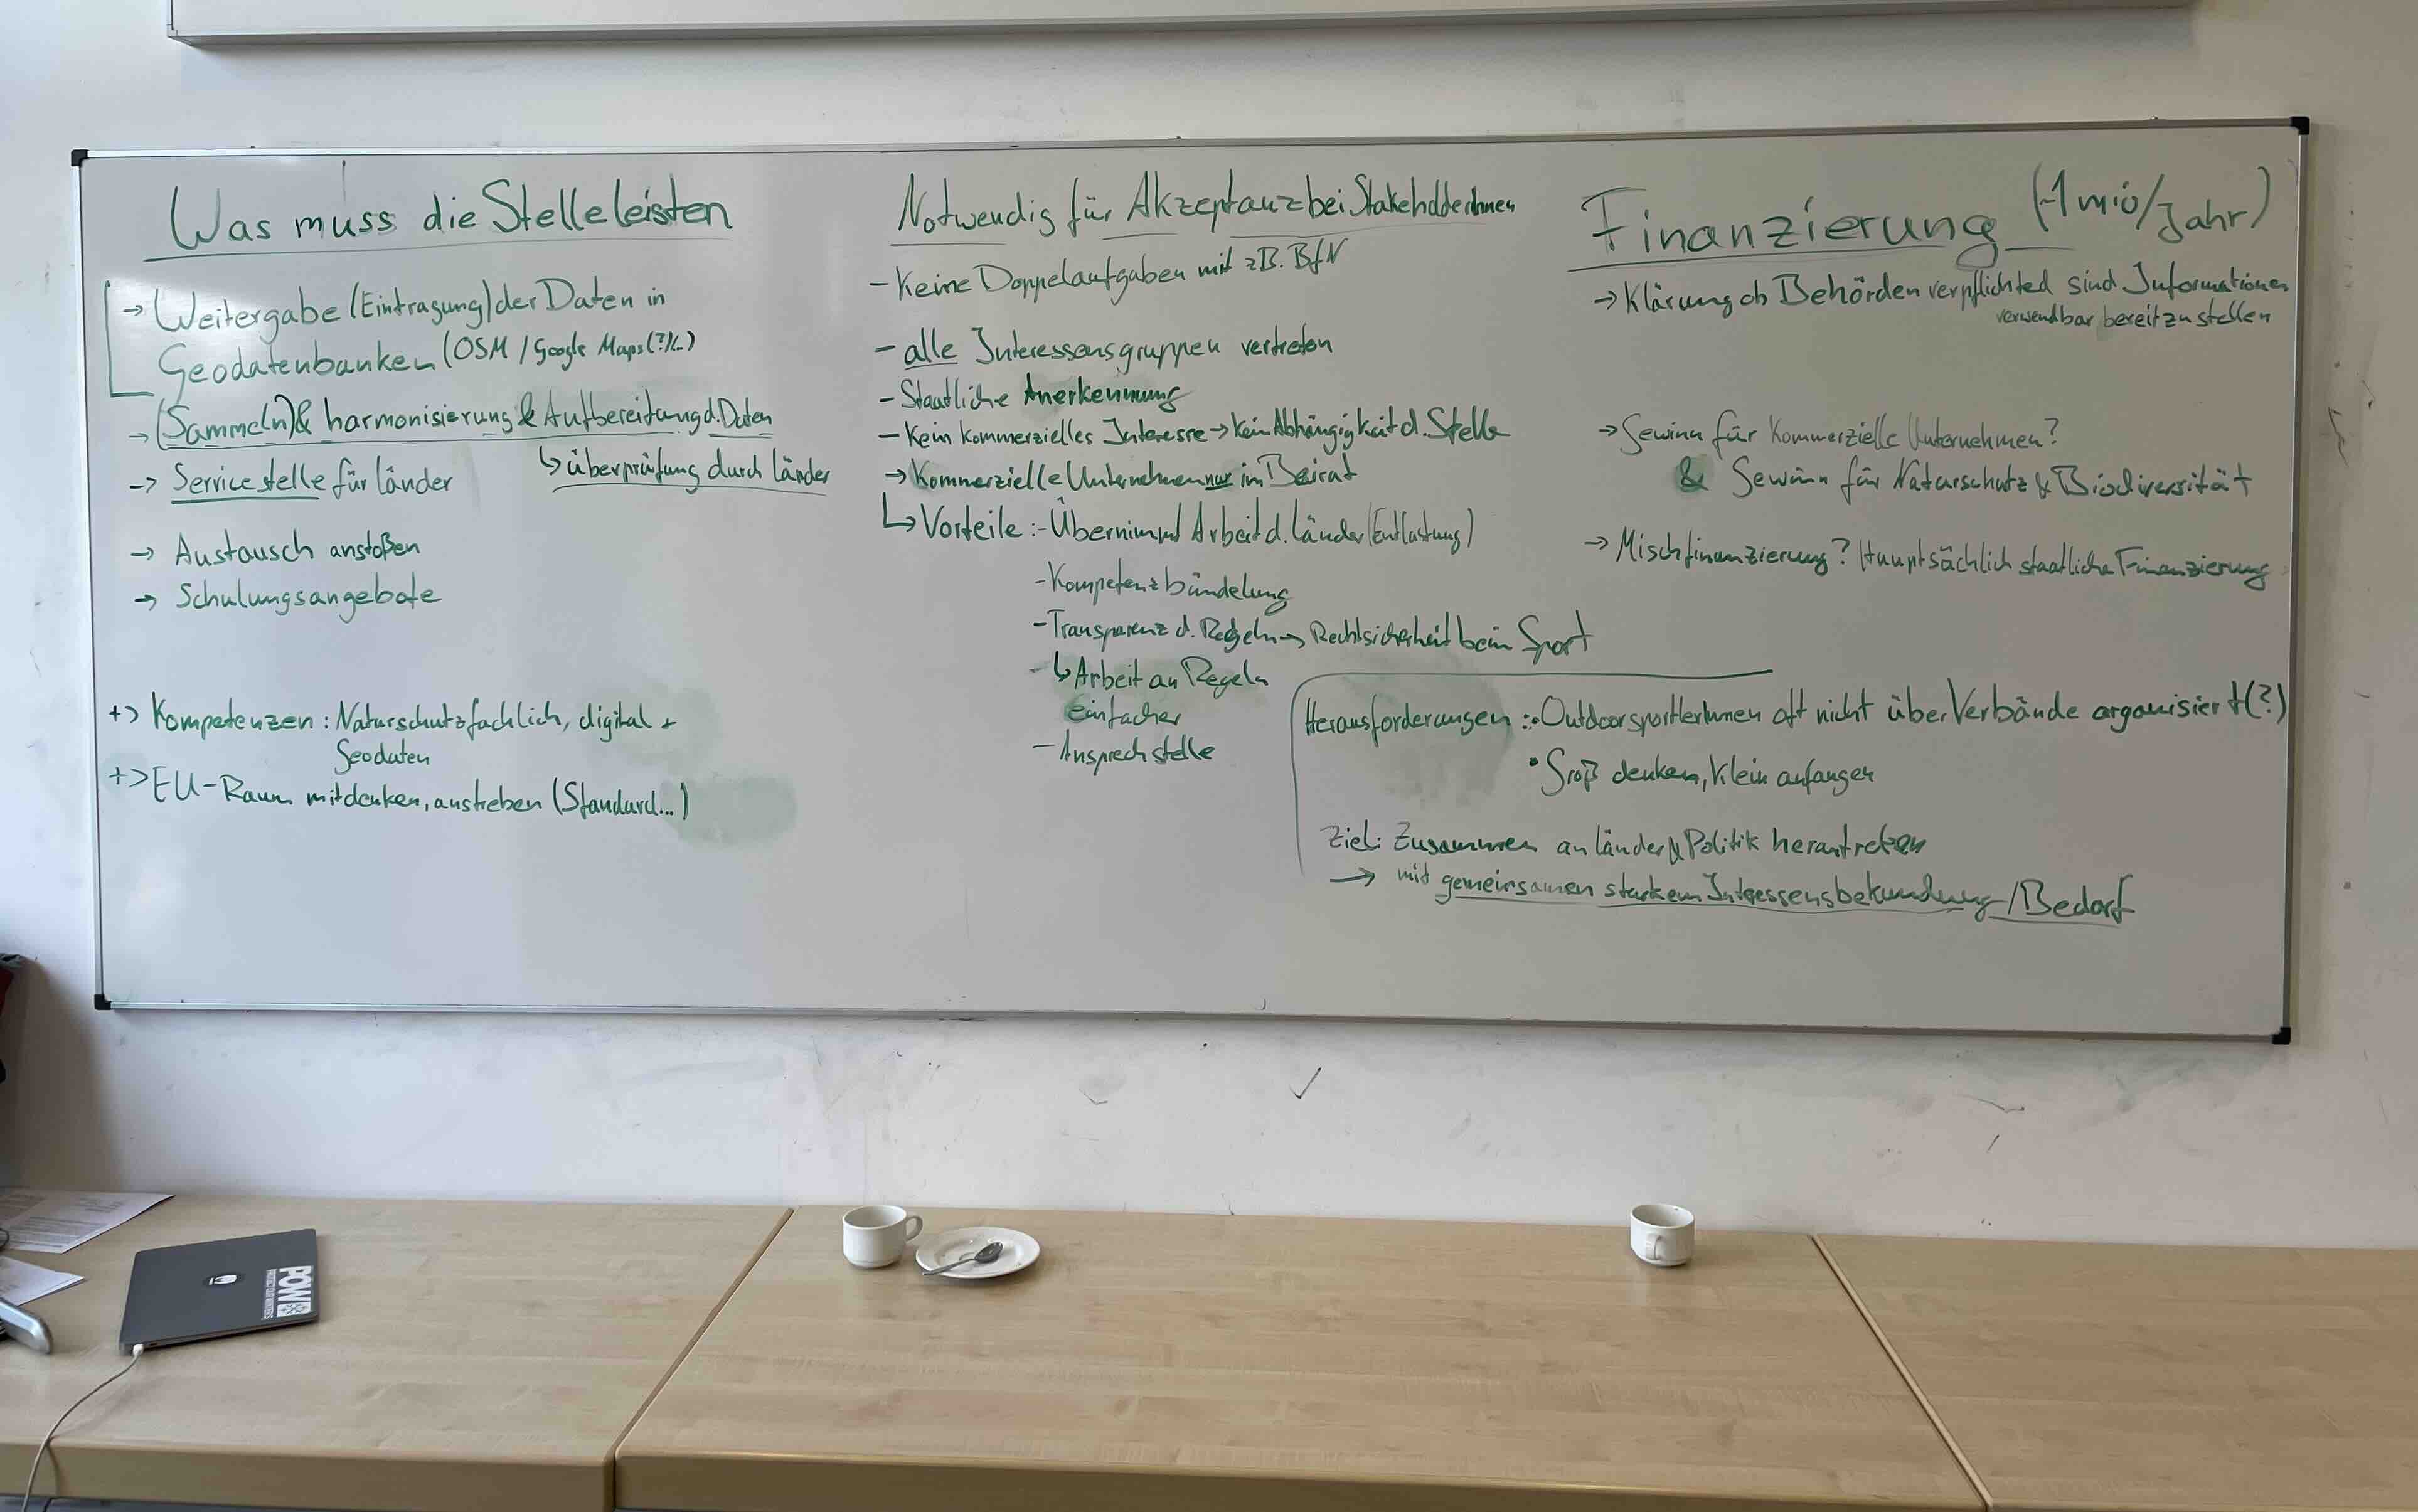 Was muss die Stelle leisten
→ Weitergabe (Eintragung) der Daten in
Geodatenbanken (OSM / Google Maps(?)/...)
→ (Sammeln) & harmonisierung & Aufbereitung d. Daten
↳ überprüfung durch länder
→ Servicestelle für länder
→ Austausch anstoßen
→ Schulungsangebote
+> Kompetenzen: Naturschutzfachlich, digital +
Geodaten
+> EU-Raum mitdenken, anstreben (Standard...)
Notwendig für Akzeptanz bei StakeholderInnen
- Keine Doppelaufgaben mit z.B. BfN
- alle Interessensgruppen vertreten
- Staatliche Anerkennung
- Kein kommerzielles Interesse → kein Abhängigkeit d. Stelle
→ Kommerzielle Unternehmen nur im Beirat
↳ Vorteile: - Übernimmt Arbeit d. länder (Entlastung)
- Kompetenzbündelung
- Transparenz d. Regeln → Rechtsicherheit beim Sport
- ↳ Arbeit an Regeln
einfacher
- Ansprechstelle
Finanzierung (~1 mio/Jahr)
→ Klärung ob Behörden verpflichted sind Informationen
verwendbar bereitzustellen
→ Gewinn für Kommerzielle Unternehmen?
& Gewinn für Naturschutz & Biodiversität
→ Mischfinanzierung? Hauptsächlich staatliche Finanzierung
Herausforderungen: • OutdoorsportlerInnen oft nicht über Verbände organisiert(?)
• Groß denken, Klein anfangen
Ziel: Zusammen an länder & Politik herantreten
→ mit gemeinsamen starkem Interessensbekundung/Bedarf
POW